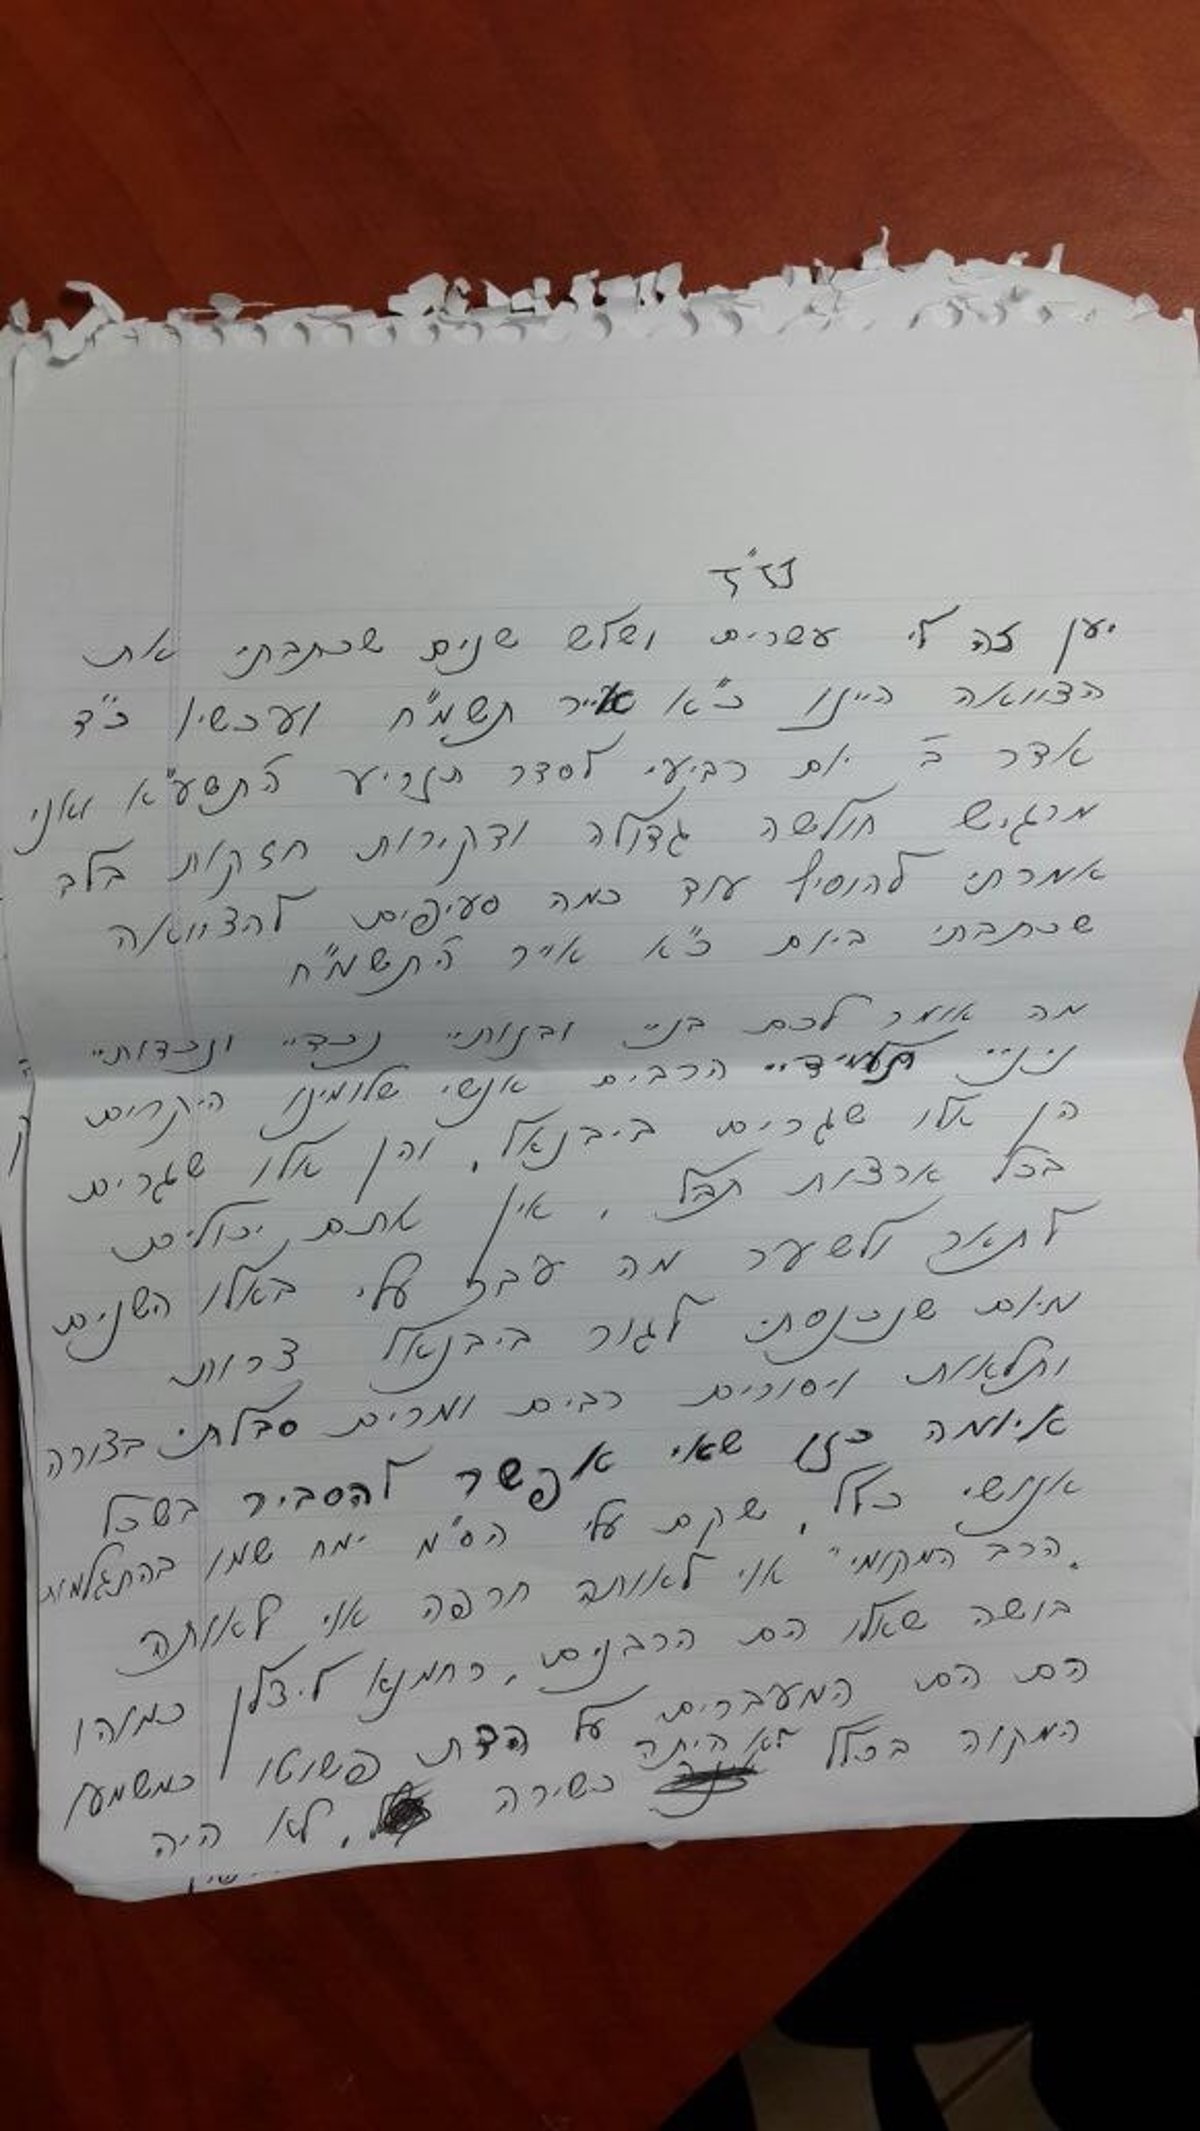 בס"ד
יען זה לי עשרים ושלש שנים שכתבתי את
הצוואה היינו כ"א אייר תשמ"ח ועכשיו כ"ד
אדר ב' יום רביעי לסדר תזריע ה'תשע"א ואני
מרגיש חולשה גדולה ודקירות חזקות בלב
אמרתי להוסיף עוד כמה סעיפים להצוואה
שכתבתי ביום כ"א אייר ה'תשמ"ח
מה אומר לכם בניי ובנותיי נכדיי ונכדותיי
ניניי תלמידיי הרבים אנשי שלומינו היקרים
הן אלו שגרים ביבנאל, והן אלו שגרים
בכל ארצות תבל, אין אתם יכולים
לתאר ולשער מה עבר עלי באלו השנים
מיום שנכנסתי לגור ביבנאל צרות
ותלאות ויסורים רבים ומרים סבלתי בצורה
איומה כזו שאי אפשר להסביר בשכל
אנושי כלל, שקם עלי הס"מ ימח שמו בהתגלמות
"הרב המקומי" אוי לאותה חרפה אוי לאותה
בושה שאלו הם הרבנים, רחמנא ליצלן כמוהו
הם הם המעברים על הדת פשוטו כמשמעו
המקוה בכלל לא היתה כשירה, לא היה